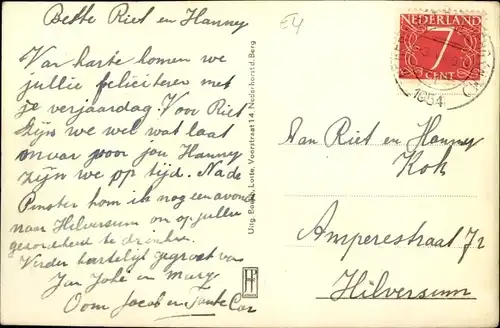 Beste Riet en Hanney
Van harte komen we
jullie feliciteren met
je verjaardag. Voor Riet
zijn we wel wat laat
maar voor jou Hanney
zijn we op tijd. Na de
Pinster kom ik nog een avond
naar Hilversum om op jullie
gezondheid te drinken.
Verder hartelijk gegroet van
Jan Joke en
Oom Jacob en Tante Cor
€4
NEDERLAND
7
CENT
1954
Aan Riet en Hanney
Kok
Amperestraat 72
Hilversum
Uitg. Voorstraat 14, Nederhorst d. Berg